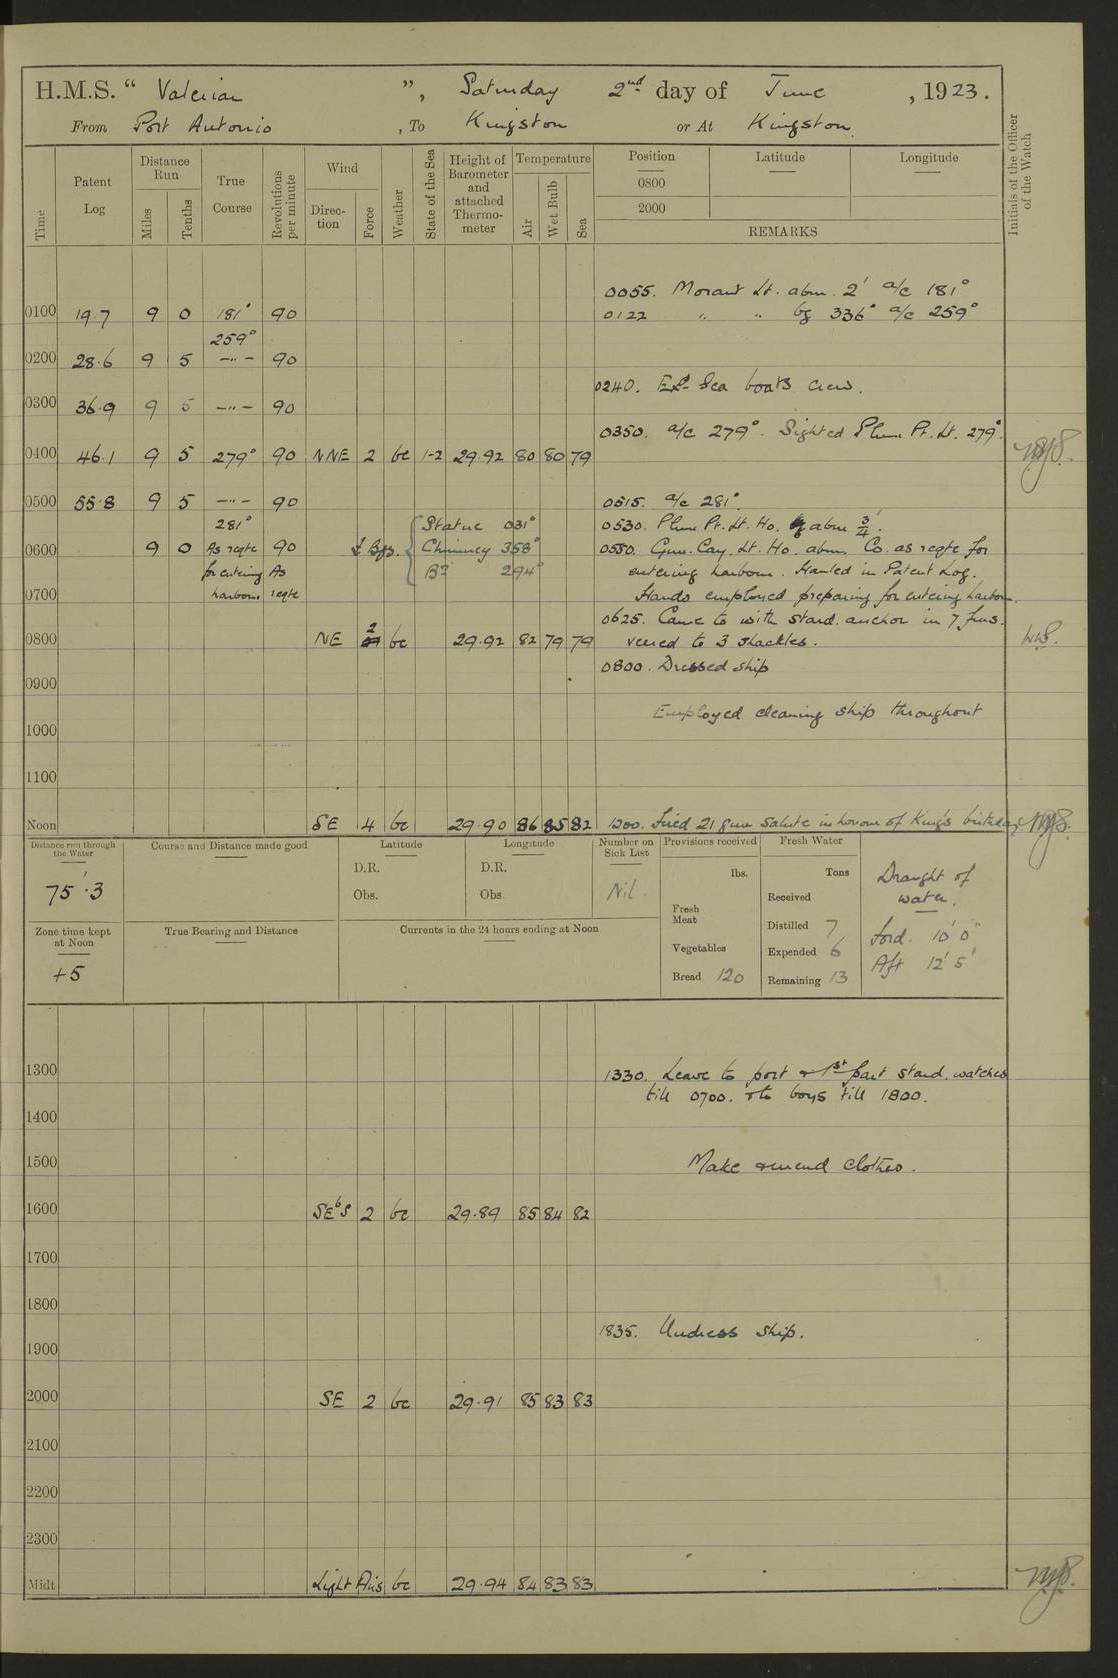 H.M.S. “ Valerian ”, Saturday 2nd day of June , 1923.
From Port Antonio , To Kingston or At Kingston
Initials of the Officer of the Watch
Time
Patent Log
Distance Run
Miles
Tenths
True Course
Revolutions per minute
Wind
Direc-tion
Force
Weather
State of the Sea
Height of Barometer and attached Thermo-meter
Temperature
Air
Wet Bulb
Sea
Position Latitude Longitude
0800
2000
REMARKS
0055. Morant Lt. abm. 2' a/c 181°
0100 19.7 9 0 181° 90 0122 " " bg 336° a/c 259°
259°
0200 28.6 9 5 —"— 90
0240. Exd. Sea boats crew.
0300 36.9 9 5 —"— 90
0350. a/c 279°. Sighted Plum Pt. Lt. 279°.
0400 46.1 9 5 279° 90 NNE 2 bc 1-2 29.92 80 80 79
0500 55.8 9 5 —"— 90 0515. a/c 281°
281° Statue 031° 0530. Plum Pt. Lt. Ho. abm 3/4'.
0600 9 0 As reqte 90 Bgs. Chimney 358° 0550. Gun. Cay. Lt. Ho. abm. Co. as reqte for
for entering As 294° entering harbour. Hauled in Patent Log.
0700 harbour reqte Hands employed preparing for entering harbour.
0625. Came to with stard. anchor in 7 fms.
0800 NE 2 bc 29.92 82 79 79 veered to 3 shackles.
0800. Dressed ship
0900
Employed cleaning ship throughout
1000
1100
Noon SE 4 bc 29.90 86 85 82 1200. Fired 21 gun salute in honour of King's birthday
Distance run through the Water
75'.3
Course and Distance made good
Latitude
D.R.
Obs.
Longitude
D.R.
Obs.
Number on Sick List
Nil.
Provisions received
lbs.
Fresh Meat
Vegetables
Bread 120
Fresh Water
Tons
Received
Distilled 7
Expended 6
Remaining 13
Draught of water.
Ford. 10' 0"
Aft 12' 5"
Zone time kept at Noon
+5
True Bearing and Distance
Currents in the 24 hours ending at Noon
1300 1330. Leave to port & 1st part stard. watches
till 0700. & to boys till 1800.
1400
1500 Make & mend clothes.
1600 SEbS 2 bc 29.89 85 84 82
1700
1800
1835. Undress ship.
1900
2000 SE 2 bc 29.91 85 83 83
2100
2200
2300
Midt Light Airs bc 29.94 84 83 83